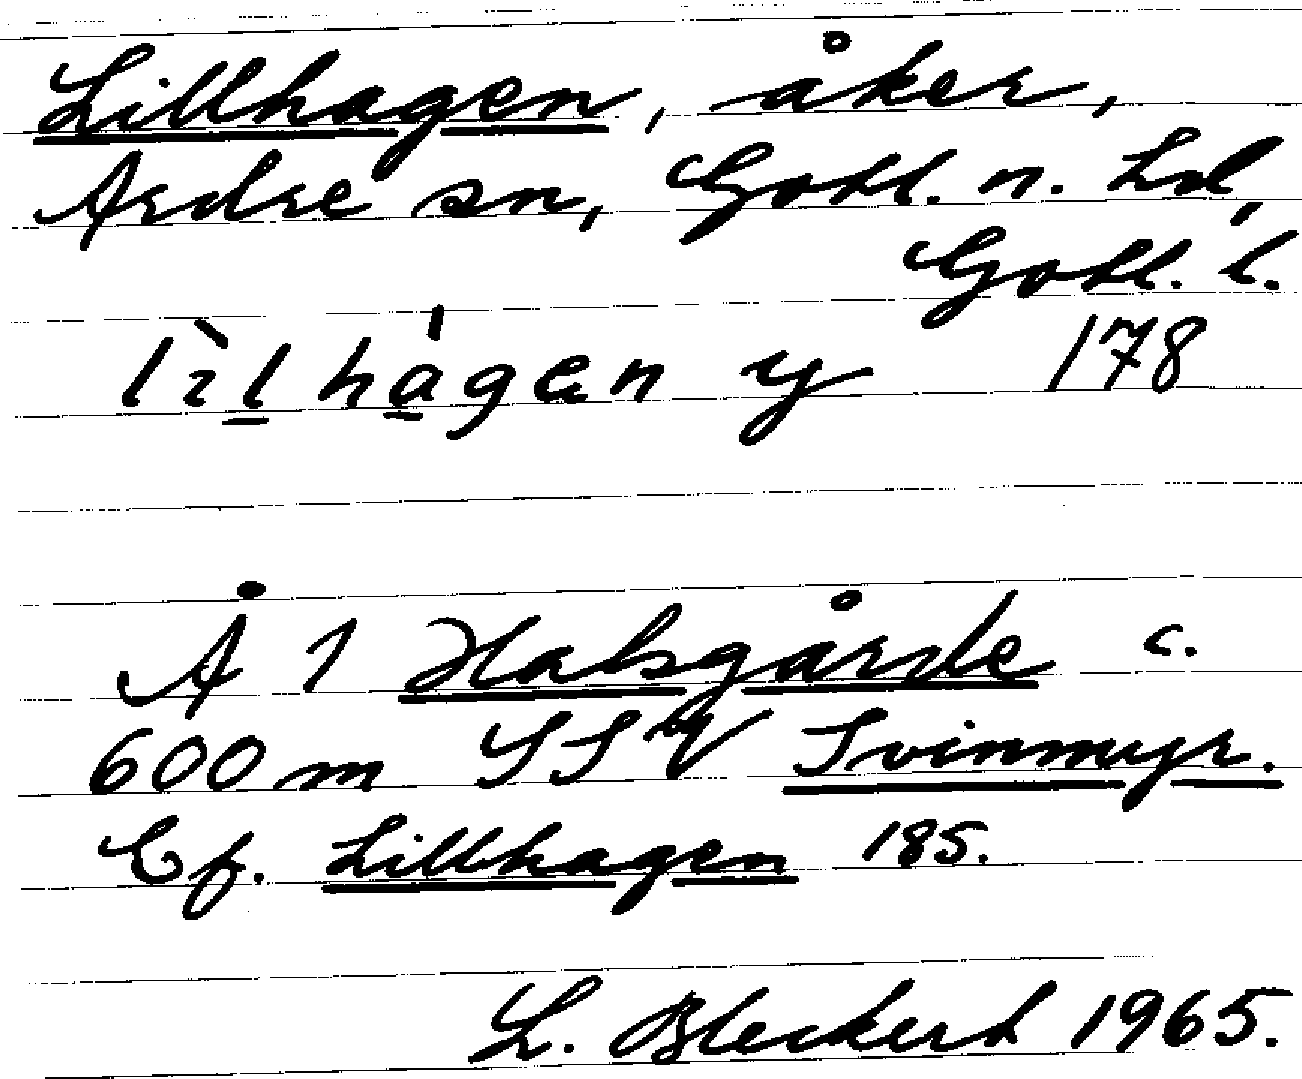 Lillhagen, åker,
Ardre sn, Gotl. n. hd,
Gotl. l.
lìlhágen y 178
Å 1 Halsgårde c.
600 m SSV Svinmyr.
Cf. Lillhagen 185.
L. Bleckert 1965.